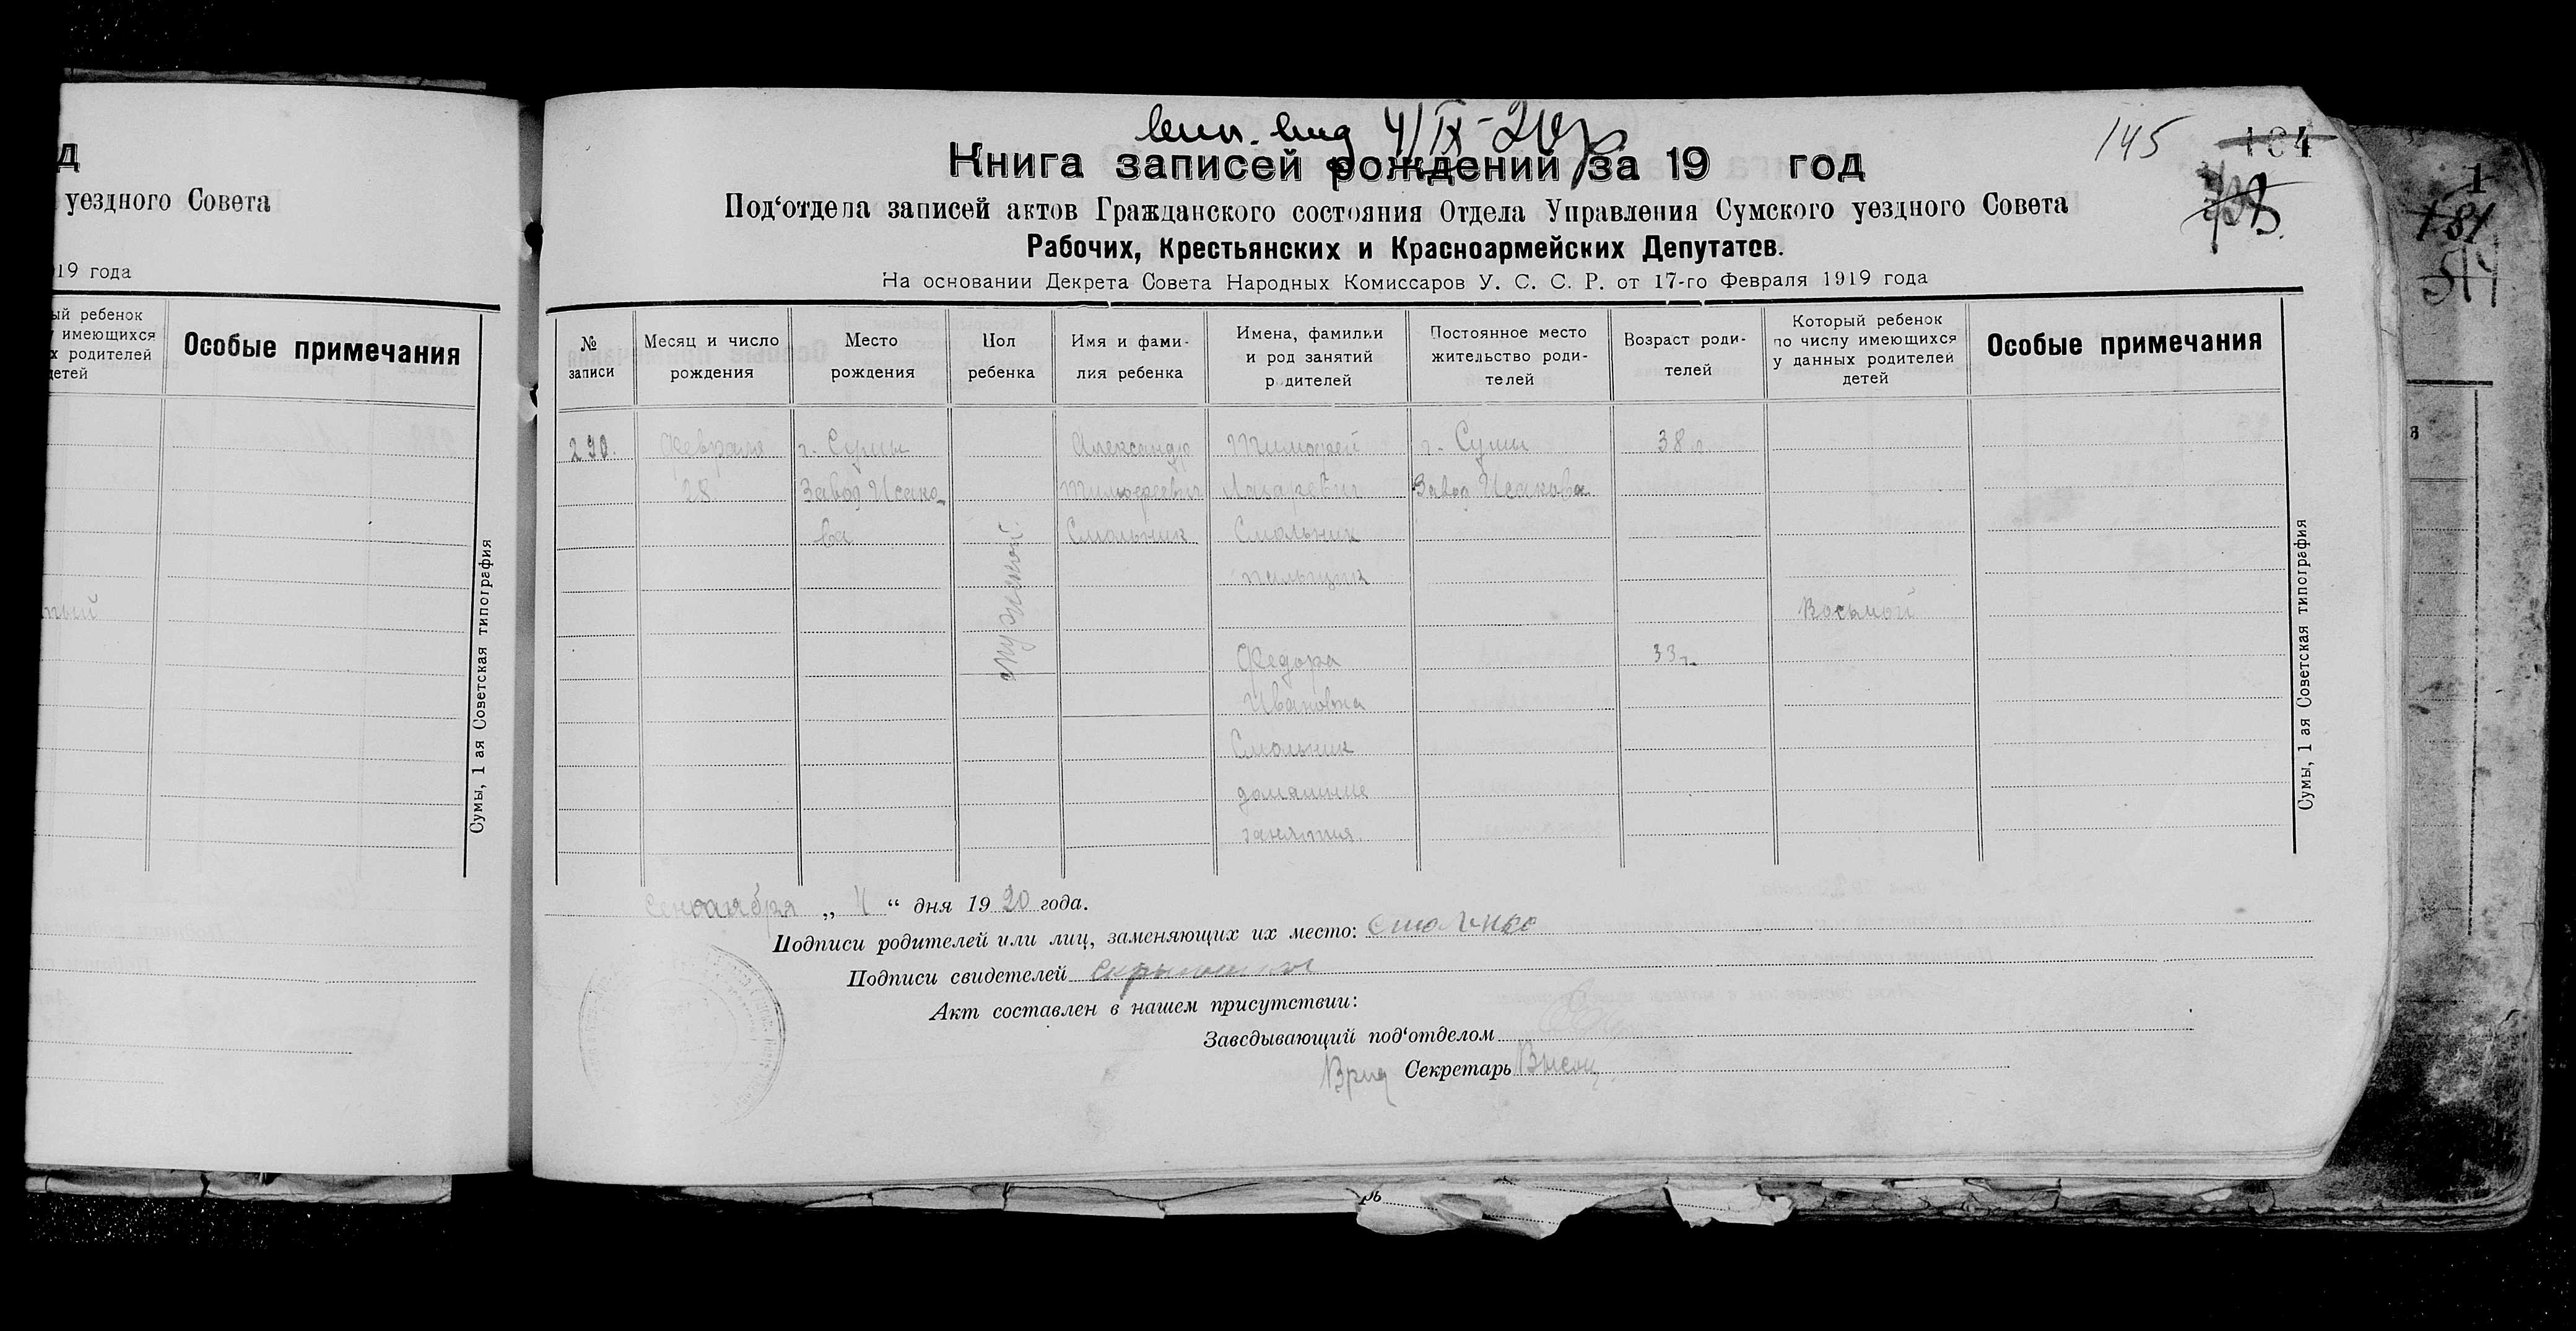 д
уездного Совета
19 года
ый ребенок
имеющихся
х родителей
детей
Особые примечания
Сумы, 1 ая Советская типография
4/IX-20
145
184
Книга записей рождений за 19 год
Под‘отдела записей актов Гражданского состояния Отдела Управления Сумского уездного Совета
Рабочих, Крестьянских и Красноармейских Депутатов.
На основании Декрета Совета Народных Комиссаров У. С. С. Р. от 17-го Февраля 1919 года
№
записи
Месяц и число
рождения
Место
рождения
Пол
ребенка
Имя и фами-
лия ребенка
Имена, фамилии
и род занятий
р дителей
Постоянное место
жительство роди-
телей
Возраст роди-
телей
Который ребенок
по числу имеющихся
у данных родителей
детей
Особые примечания
290.
Февраля
28
г. Сумы
Завод Исако-
ва
мужской
Александр
Тимофеевич
Смольник
Тимофей
Лазаревич
Смольник
пильщик
Федора
Ивановна
Смольник
домашние
занятия.
г. Сумы
Завод Исакова
38 л
33 г.
Восьмой
Сумы, 1 ая Советская типография
Сентября „ 4 “ дня 19 20 года.
Подписи родителей или лиц, заменяющих их место:
Подписи свидетелей
Акт составлен в нашем присутствии:
Заведывающий под‘отделом
Врид Секретарь
1
181
514